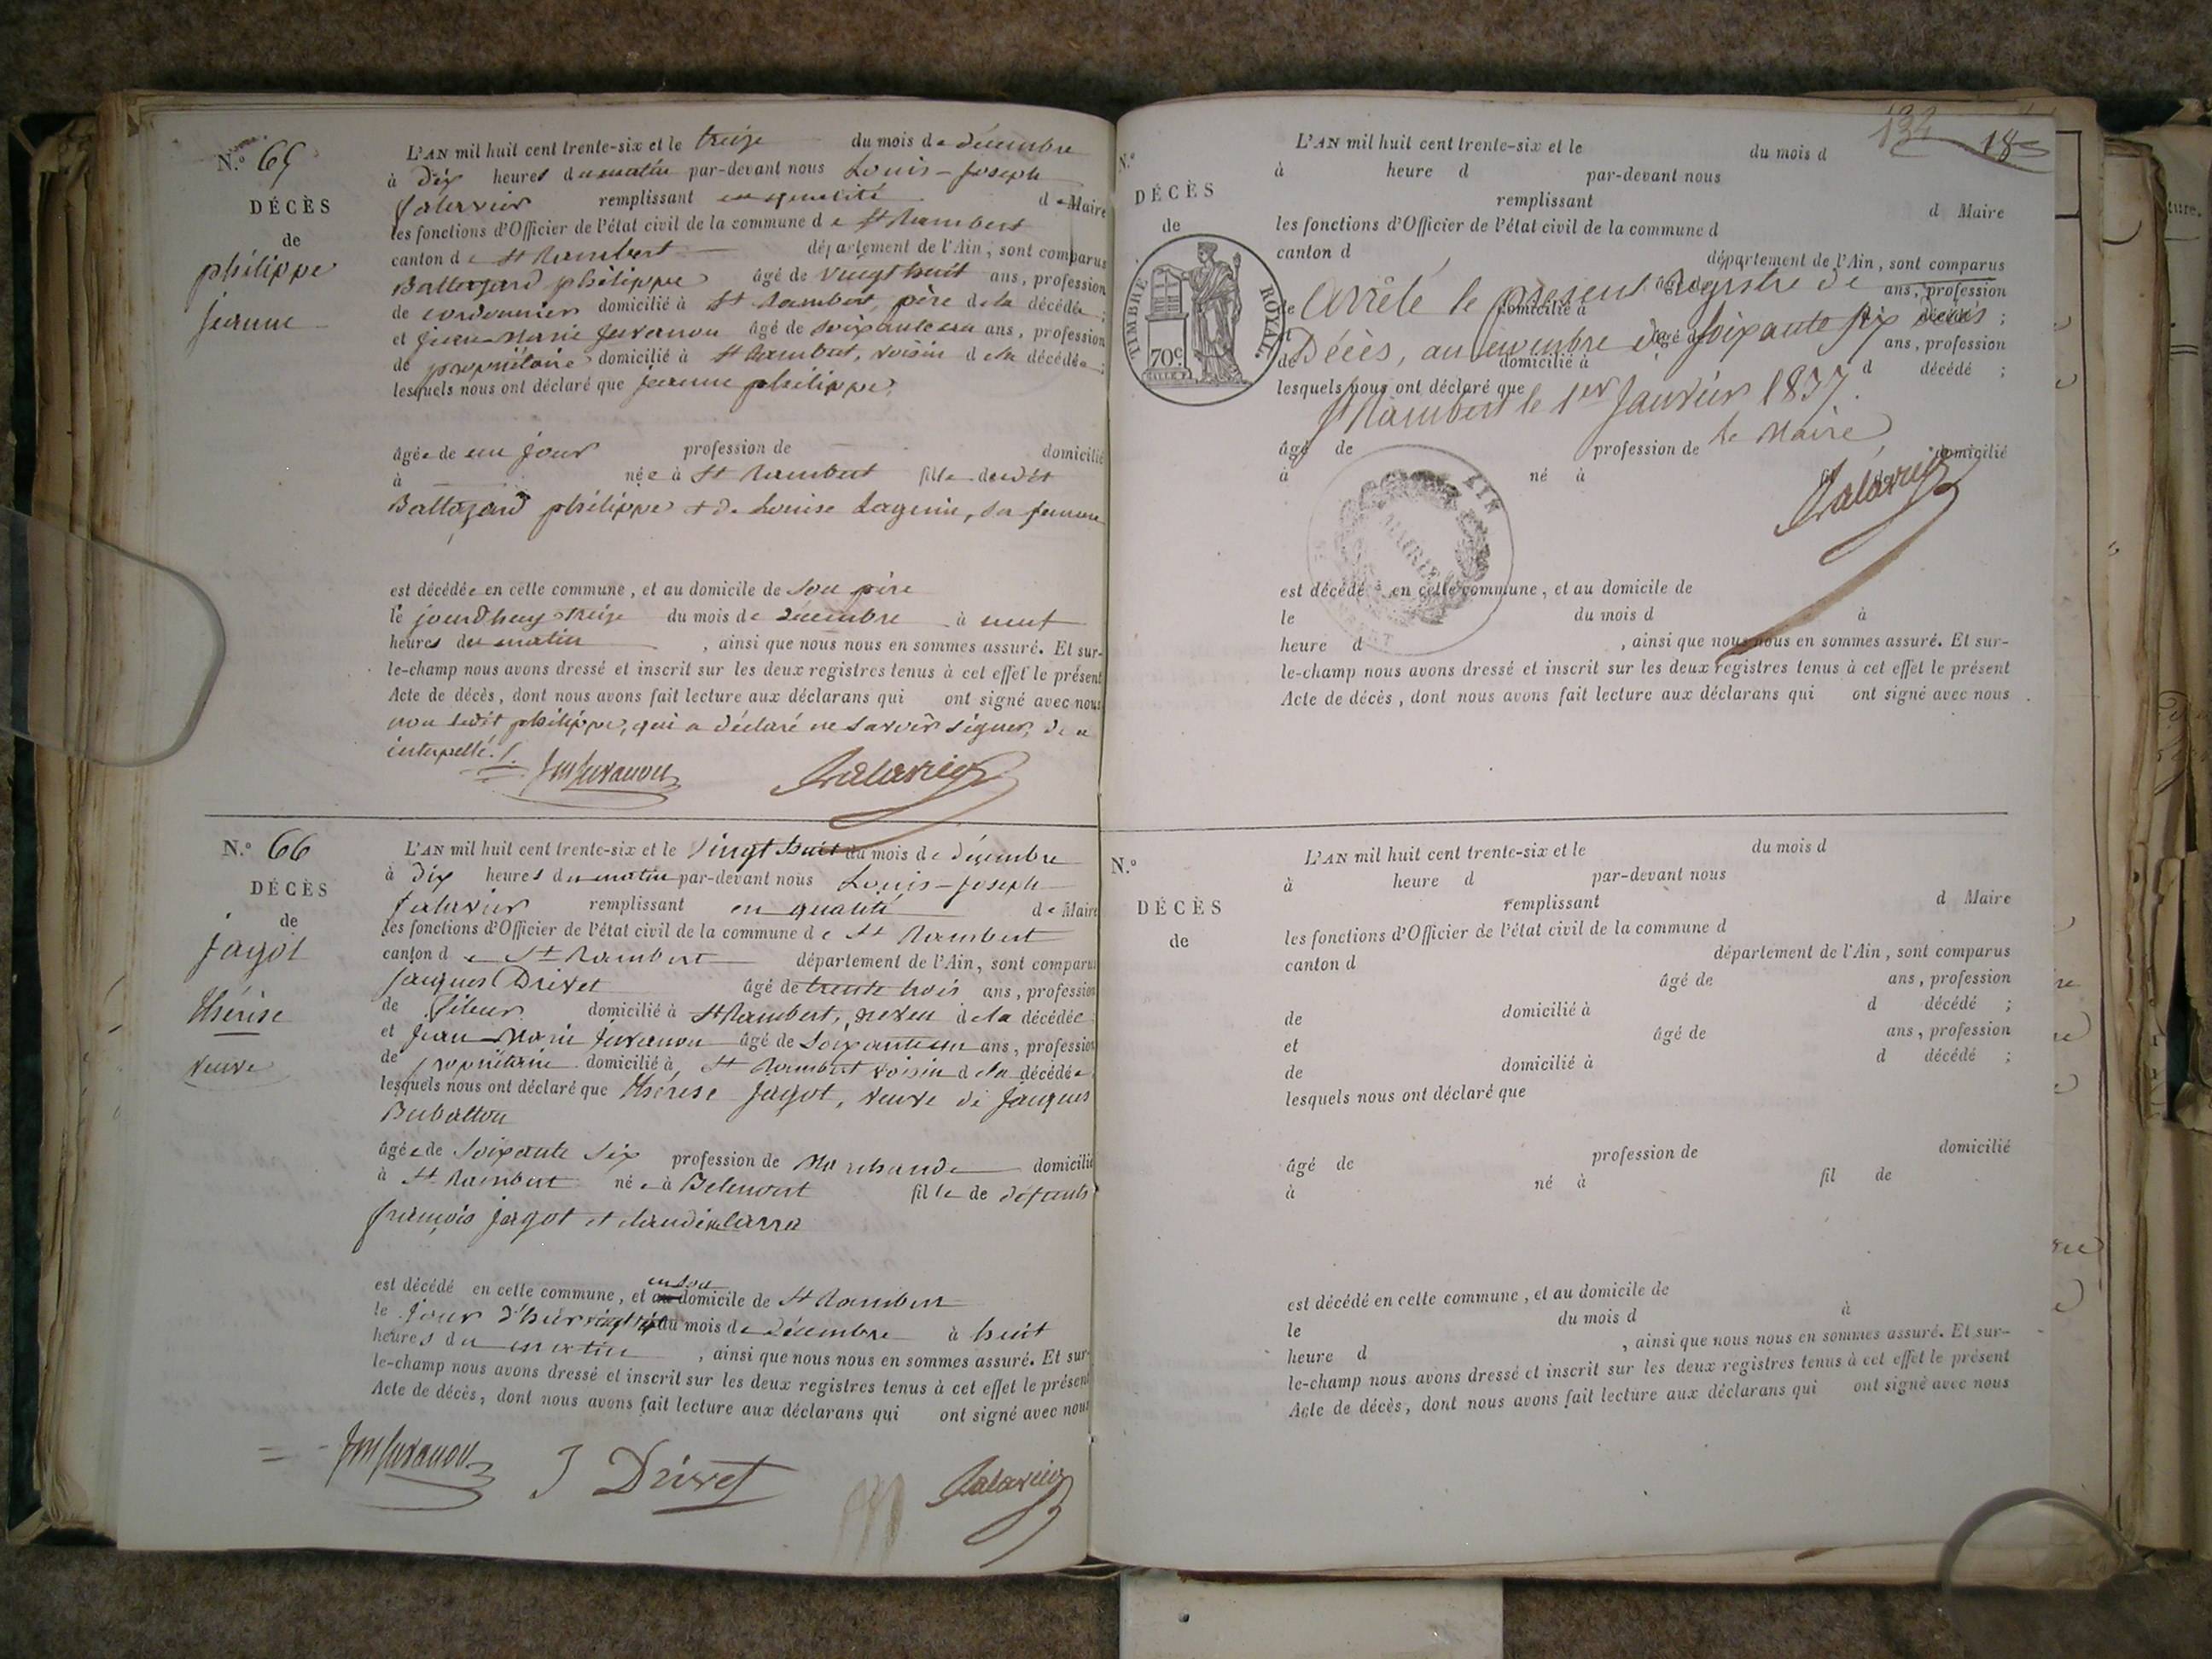 N.º 65
DÉCÈS
de
philippe
jeanne
L'AN mil huit cent trente-six et le treize du mois de décembre
à dix heures du matin par-devant nous Louis-Joseph
remplissant en qualité de Maire
les fonctions d'Officier de l'état civil de la commune de St Rambert
canton de St Rambert département de l'Ain, sont comparus
Baltazard philippe âgé de vingt huit ans, profession
de cordonnier domicilié à St Rambert, père de la décédée;
et jean-Marie Juvanon âgé de soixante un ans, profession
de propriétaire domicilié à St Rambert, voisin de la décédée;
lesquels nous ont déclaré que jeanne philippe,
âgée de un jour profession de domicilié
à née à St Rambert fille dudit
Baltazard philippe et de Louise, sa femme
est décédée en cette commune, et au domicile de son père
le jourdhuy treize du mois de décembre à neuf
heures du matin, ainsi que nous nous en sommes assuré. Et sur-
le-champ nous avons dressé et inscrit sur les deux registres tenus à cet effet le présent
Acte de décès, dont nous avons fait lecture aux déclarans qui ont signé avec nous
non ledit philippe, qui a déclaré ne savoir signer, de ce
interpellé.
JM Juvanon
N.º 66
DÉCÈS
de
jagot
thérèse
veuve
L'AN mil huit cent trente-six et le vingt huit du mois de décembre
à dix heures du matin par-devant nous Louis-Joseph
remplissant en qualité de Maire
les fonctions d'Officier de l'état civil de la commune de St Rambert
canton de St Rambert département de l'Ain, sont comparus
jacques Drivet âgé de trente trois ans, profession
de fileur domicilié à St Rambert, neveu de la décédée;
et jean-Marie Juvanon âgé de soixante un ans, profession
de propriétaire domicilié à St Rambert voisin de la décédée;
lesquels nous ont déclaré que thérèse jagot, veuve de jacques
âgée de soixante six profession de marchande domicilié
à St Rambert née à fille de défunts
françois jagot et
est décédé en cette commune, et en son domicile de St Rambert
le jour d'hui vingt huit du mois de décembre à huit
heures du matin, ainsi que nous nous en sommes assuré. Et sur-
le-champ nous avons dressé et inscrit sur les deux registres tenus à cet effet le présent
Acte de décès, dont nous avons fait lecture aux déclarans qui ont signé avec nous
JM Juvanon J Drivet
18
N.º
DÉCÈS
de
TIMBRE ROYAL.
70c
L'AN mil huit cent trente-six et le du mois d
à heure d par-devant nous
remplissant d Maire
les fonctions d'Officier de l'état civil de la commune d
canton d département de l'Ain, sont comparus
âgé de ans, profession
Arrêté le présent Registre de
de domicilié à d décédé ;
Décès, au nombre de soixante six décès
et âgé de ans, profession
de domicilié à d décédé ;
lesquels nous ont déclaré que
St Rambert le 1er Janvier 1837.
le Maire
âgé de profession de domicilié
à né à fil de
MAIRIE
AIN
est décédé en cette commune, et au domicile de
le du mois d à
heure d , ainsi que nous nous en sommes assuré. Et sur-
le-champ nous avons dressé et inscrit sur les deux registres tenus à cet effet le présent
Acte de décès, dont nous avons fait lecture aux déclarans qui ont signé avec nous
N.º
DÉCÈS
de
L'AN mil huit cent trente-six et le du mois d
à heure d par-devant nous
remplissant d Maire
les fonctions d'Officier de l'état civil de la commune d
canton d département de l'Ain, sont comparus
âgé de ans, profession
de domicilié à d décédé ;
et âgé de ans, profession
de domicilié à d décédé ;
lesquels nous ont déclaré que
âgé de profession de domicilié
à né à fil de
est décédé en cette commune, et au domicile de
le du mois d à
heure d , ainsi que nous nous en sommes assuré. Et sur-
le-champ nous avons dressé et inscrit sur les deux registres tenus à cet effet le présent
Acte de décès, dont nous avons fait lecture aux déclarans qui ont signé avec nous